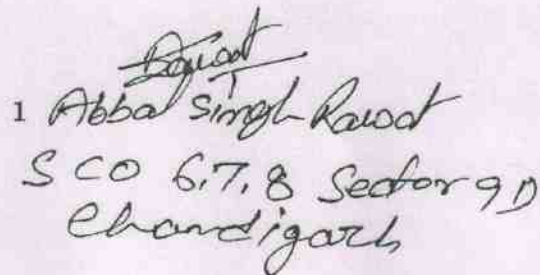 Rawat
1 Abbal Singh Rawat
SCO 6,7,8 Sector 9D
Chandigarh